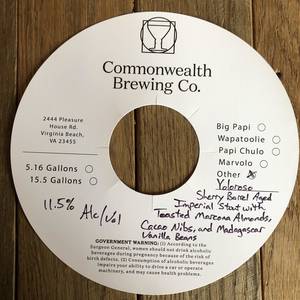 Commonwealth
Brewing Co.
2444 Pleasure
House Rd.
Virginia Beach,
VA 23455
Big Papi
Wapatoolie
Papi Chulo
Marvolo
Other
5.16 Gallons
15.5 Gallons
11.5% Alc/Vol
Yoloroso
Sherry Barrel Aged
Imperial Stout with
Toasted Marcona Almonds,
Cacao Nibs, and Madagascar
Vanilla Beans
GOVERNMENT WARNING: (1) According to the
Surgeon General, women should not drink alcoholic
beverages during pregnancy because of the risk of
birth defects. (2) Consumption of alcoholic beverages
impairs your ability to drive a car or operate
machinery, and may cause health problems.